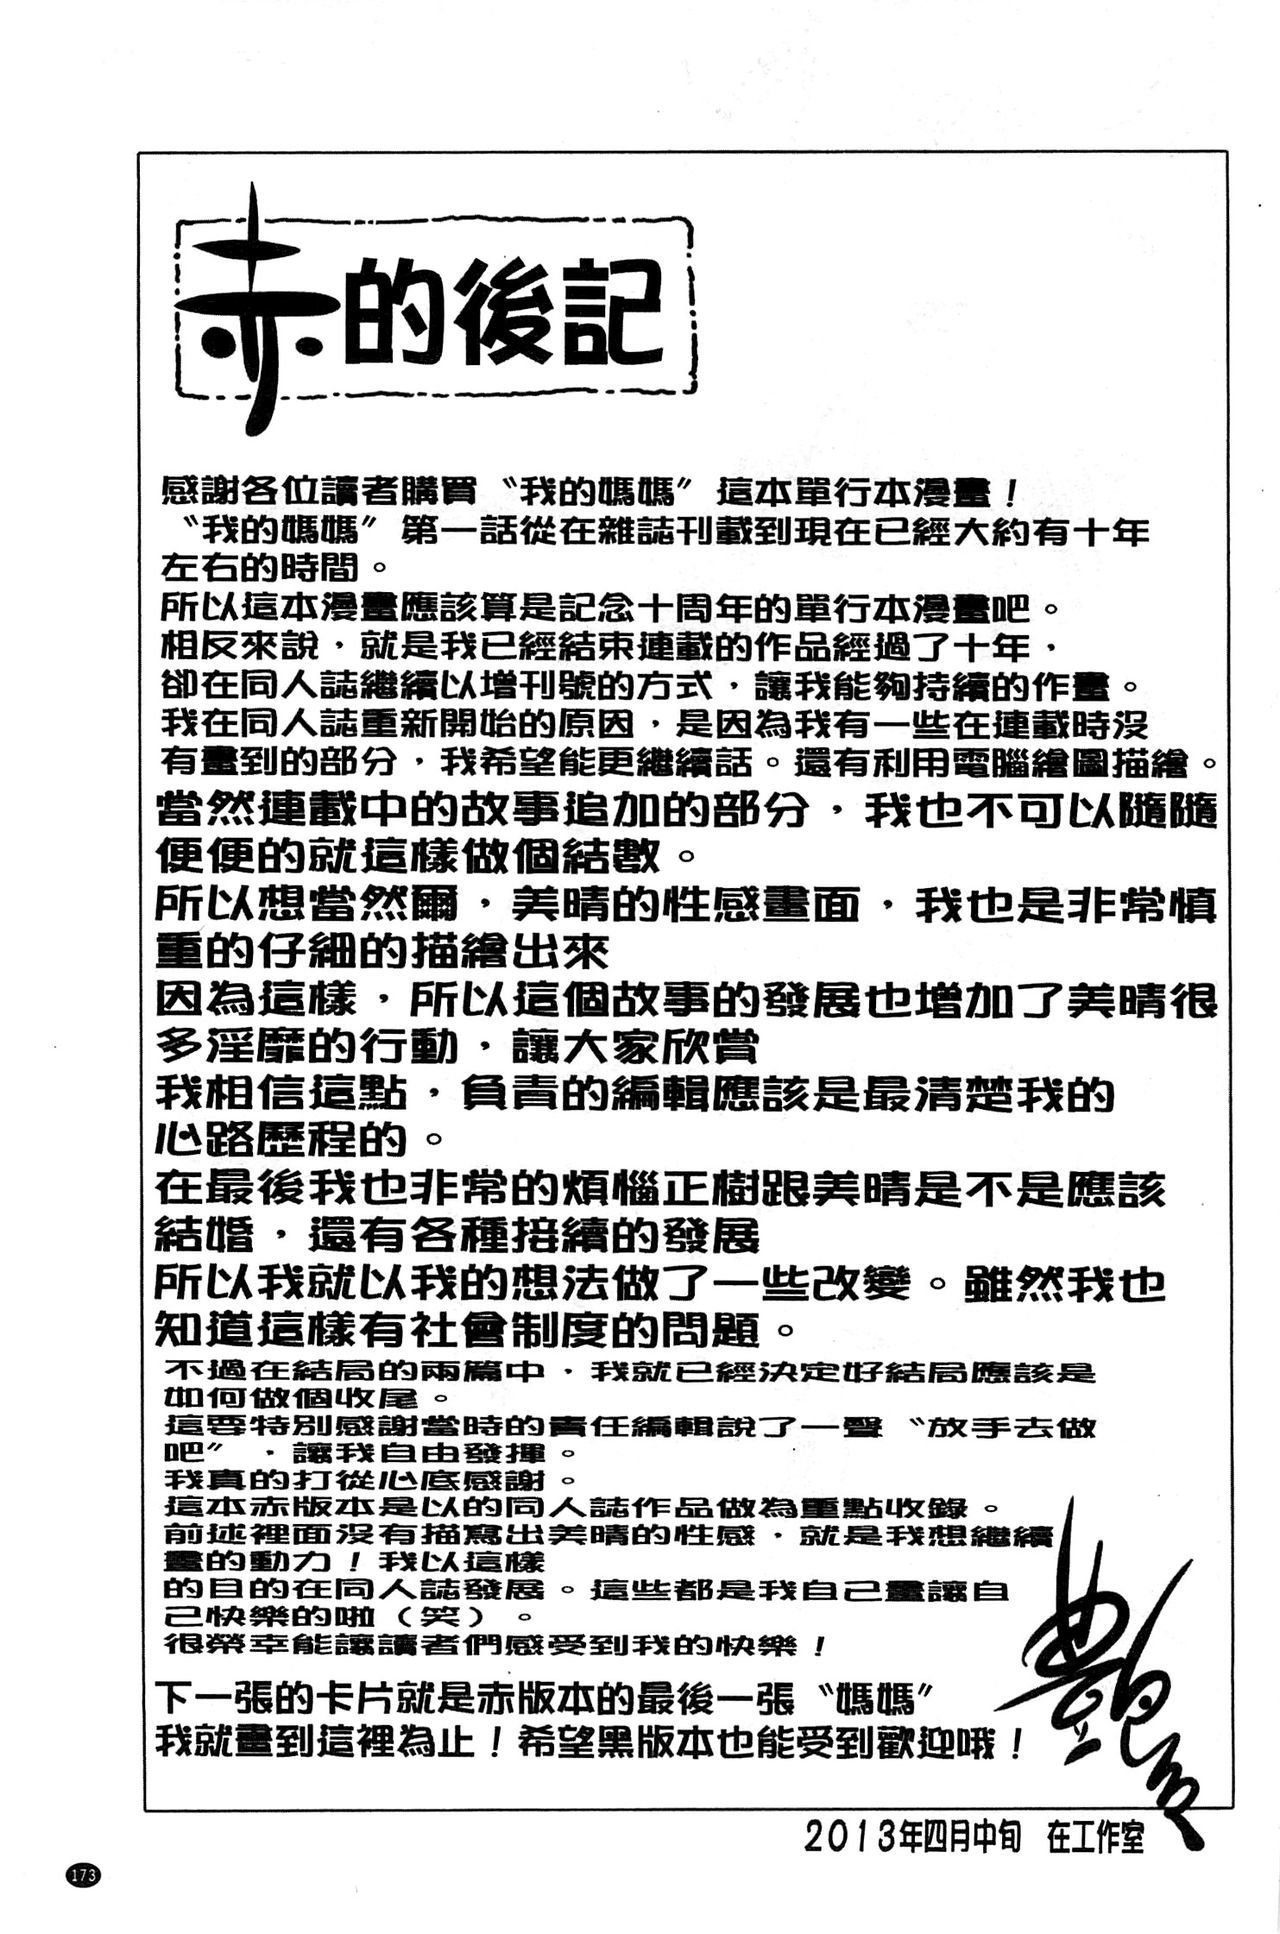 赤的後記
感謝各位讀者購買〝我的媽媽〞這本單行本漫畫！
〝我的媽媽〞第一話從在雜誌刊載到現在已經大約有十年
左右的時間。
所以這本漫畫應該算是記念十周年的單行本漫畫吧。
相反來說，就是我已經結束連載的作品經過了十年，
卻在同人誌繼續以增刊號的方式，讓我能夠持續的作畫。
我在同人誌重新開始的原因，是因為我有一些在連載時沒
有畫到的部分，我希望能更繼續話。還有利用電腦繪圖描繪。
當然連載中的故事追加的部分，我也不可以隨隨
便便的就這樣做個結數。
所以想當然爾，美晴的性感畫面，我也是非常慎
重的仔細的描繪出來
因為這樣，所以這個故事的發展也增加了美晴很
多淫靡的行動，讓大家欣賞
我相信這點，負責的編輯應該是最清楚我的
心路歷程的。
在最後我也非常的煩惱正樹跟美晴是不是應該
結婚，還有各種接續的發展
所以我就以我的想法做了一些改變。雖然我也
知道這樣有社會制度的問題。
不過在結局的兩篇中，我就已經決定好結局應該是
如何做個收尾。
這要特別感謝當時的責任編輯說了一聲〝放手去做
吧〞，讓我自由發揮。
我真的打從心底感謝。
這本赤版本是以的同人誌作品做為重點收錄。
前述裡面沒有描寫出美晴的性感，就是我想繼續
畫的動力！我以這樣
的目的在同人誌發展。這些都是我自己畫讓自
己快樂的啦（笑）。
很榮幸能讓讀者們感受到我的快樂！
下一張的卡片就是赤版本的最後一張〝媽媽〞
我就畫到這裡為止！希望黑版本也能受到歡迎哦！
2013年四月中旬 在工作室
173